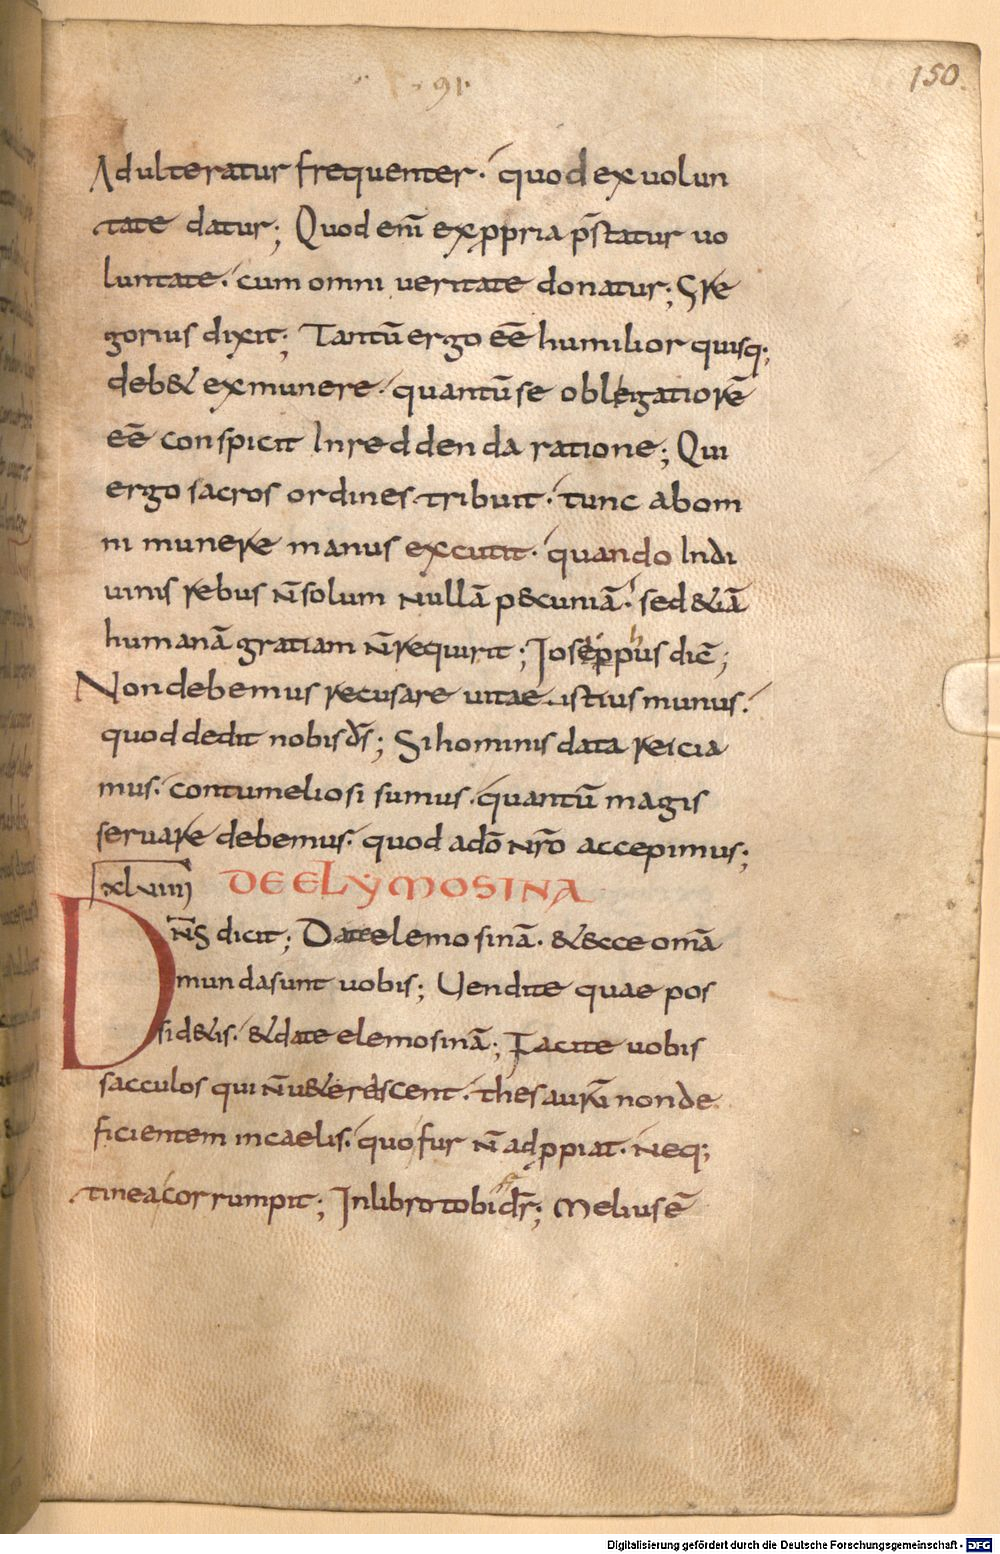 91
150.
Adulteratur frequenter· quod ex uolun
tate datur; Quod em̄ exꝓpria p̄statur uo
luntate· cum omni ueritate donatur; Gre
gorius dixit; Tantū ergo eē humilior quisq;
deb& ex munere· quantū se obligatiorē
eē conspicit In reddenda ratione; Qui
ergo sacros ordines tribuit· tunc ab om
ni munere manus excutit· quando In di
uinis rebus n̄ solum nullā p&cuniā· sed &iā
humanā gratiam n̄ requirit; Joseppus dic̄;
Non debemus recusare uitae istius munus·
quod dedit nobis d̄s; Si hominis data reicia
mus· contumeliosi sumus· quantū magis
seruare debemus· quod a dō nr̄o accepimus;
xlviiii DE ELYMOSINA
Dn̄s dicit; Date elemosinā· & ecce omā
munda sunt uobis; Uendite quae pos
sid&is· & date elemosinā; Facite uobis
sacculos qui n̄ u&erescent· thesaurū non de
ficientem in caelis· quo fur n̄ adꝓpiat· neq;
tinea corrumpit; In libro tobi dr̄; Melius ē
Digitalisierung gefördert durch die Deutsche Forschungsgemeinschaft - DFG